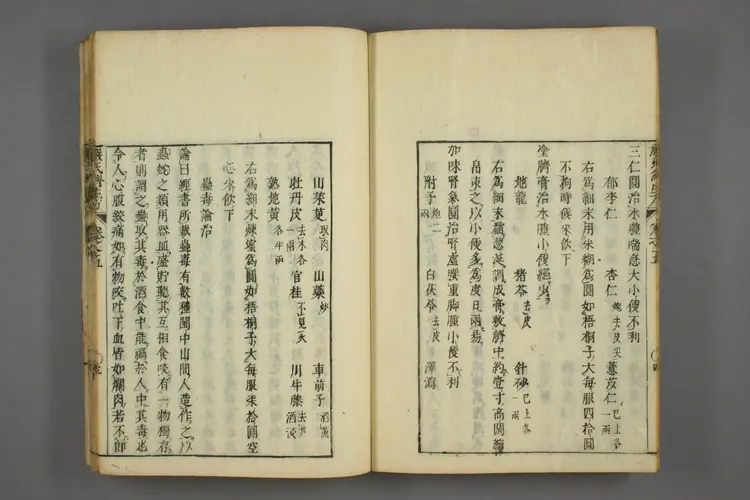 三仁圓治水腫喘急大小便不利
郁李仁 杏仁炮去皮尖 薏苡仁已上各一兩
右爲細末用米糊爲圓如梧桐子大每服四拾圓
不拘時候米飲下
塗臍膏治水腫小便絕少
地龍 猪苓去皮 針砂已上各一兩
右爲細末擂葱涎調成膏敷臍中約壹寸高闊絹
帛束之以小便多爲度日兩易
加味腎氣圓治腎虛腰重脚腫小便不利
附子炮二兩 白茯苓去皮 澤瀉
山茱萸取肉 山藥炒 車前子酒蒸
牡丹皮去木各一兩 官桂不見火 川牛膝去蘆酒浸
熟地黃各半兩
右爲細末煉蜜爲圓如梧桐子大每服柒拾圓空
心米飲下
蠱毒論治
論曰經書所載蠱毒有數種閩中山間人造作之以
蟲蛇之類用器皿盛貯聽其互相食啖有一物獨存
者則謂之蠱取其毒於酒食中能禍於人中其毒也
令人心腹絞痛如有物咬吐下血皆如爛肉若不即
卷之五